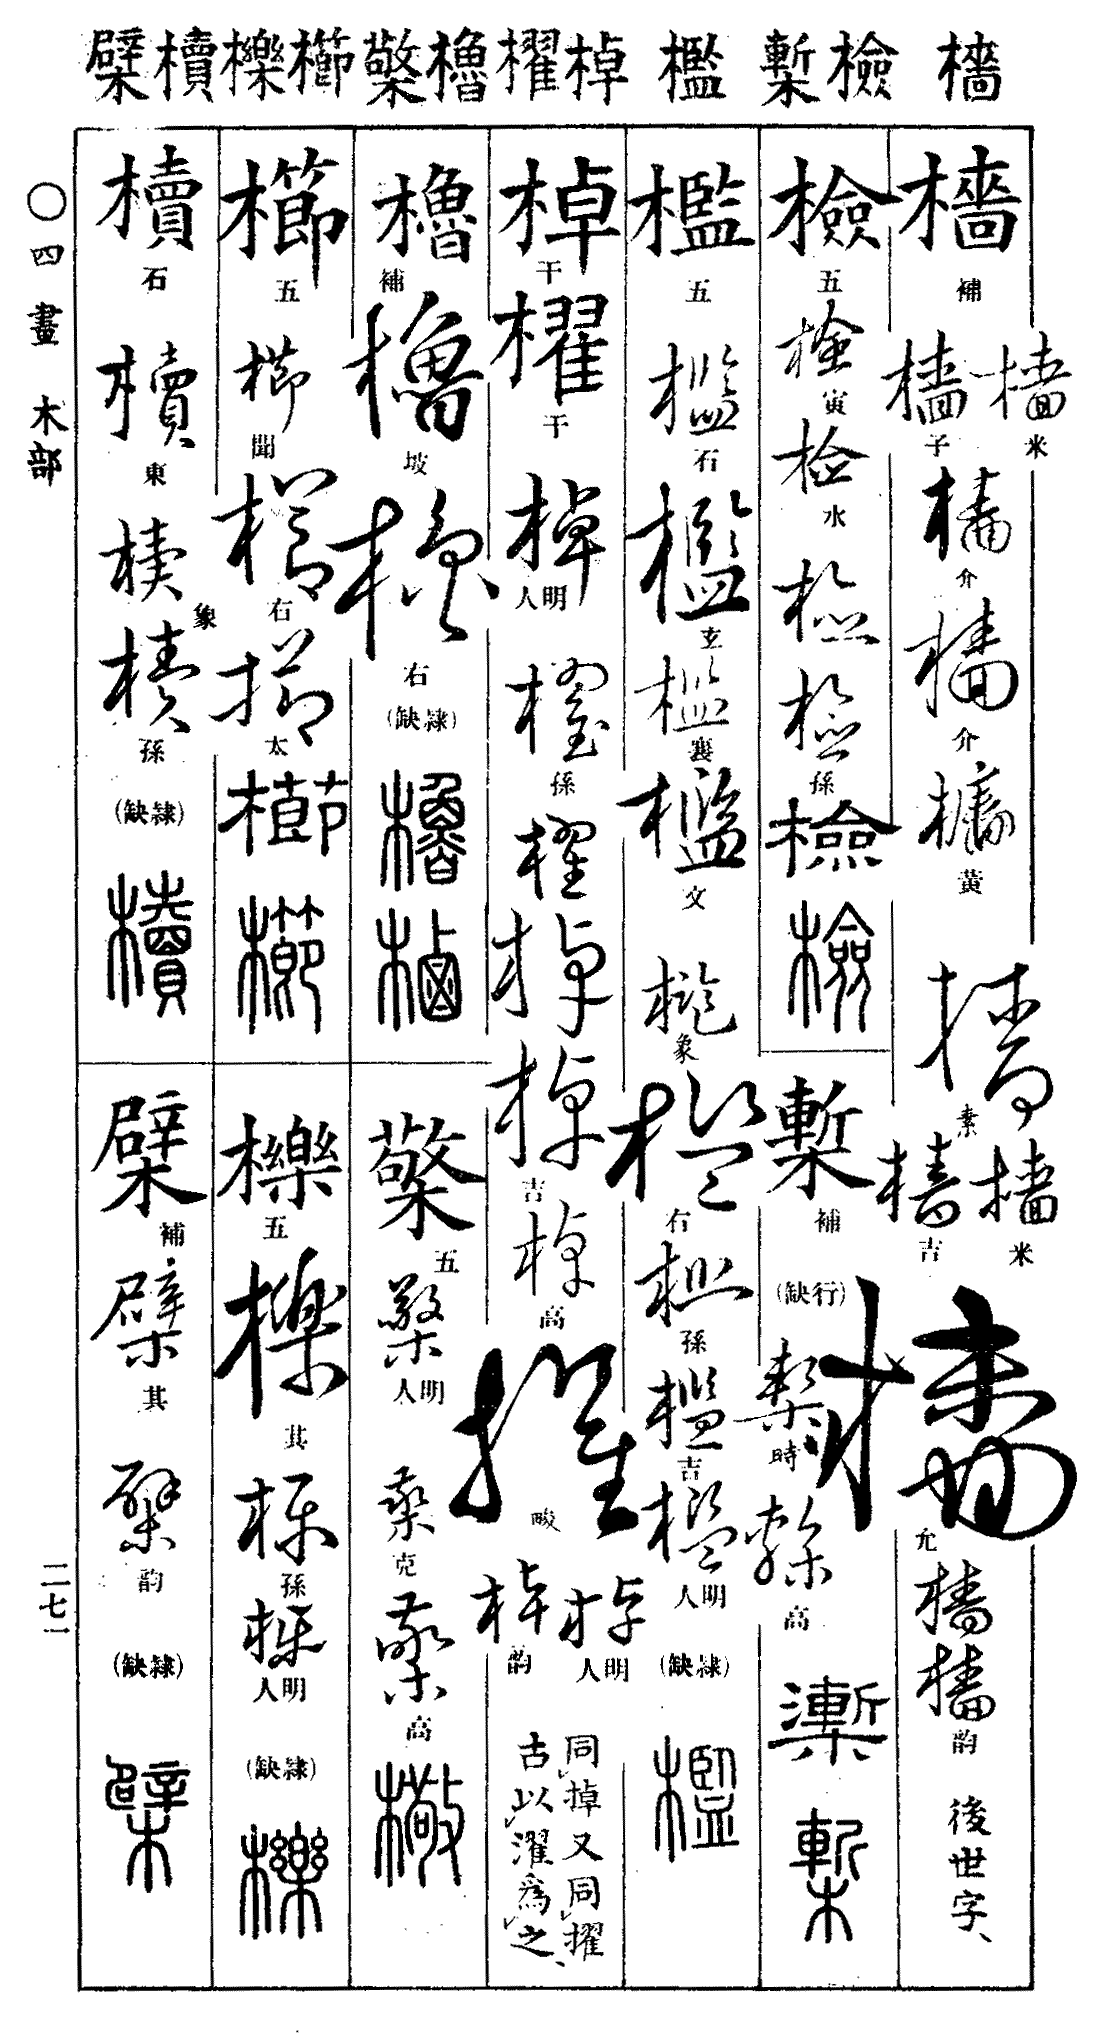 檣
檢槧
檻
棹櫂
櫓檠
櫛櫟
櫝檗
檣
補
檣檣
米子
檣
介
檣
介
檣
黃
檣
素
檣檣
米吉
檣
允
檣
檣
韵
後世字、
檢
五
檢
寅
檢
水
檢
檢
孫
檢
檢
槧
補
(缺行)
槧
時
槧
高
槧
槧
檻
五
檻
石
檻
玄
檻
襄
檻
文
檻
象
檻
右
檻
孫
檻
吉
檻
人明
(缺隸)
檻
棹
干
櫂
干
棹
人明
櫂
孫
櫂
棹
棹
吉
棹
高
櫂
畯
棹棹
人明
韵
同掉又同擢
古以濯爲之、
櫓
補
櫓
坡
櫓
右
(缺隸)
櫓
檠
五
檠
人明
檠
克
檠
高
櫛
五
櫛
聞
櫛
右
櫛
太
櫛
櫛
櫟
五
櫟
其
櫟
孫
櫟
人明
(缺隸)
櫟
櫝
石
櫝
東
櫝
象
櫝
孫
(缺隸)
櫝
檗
補
檗
其
檗
韵
(缺隸)
檗
〇四畫 木部
二七一